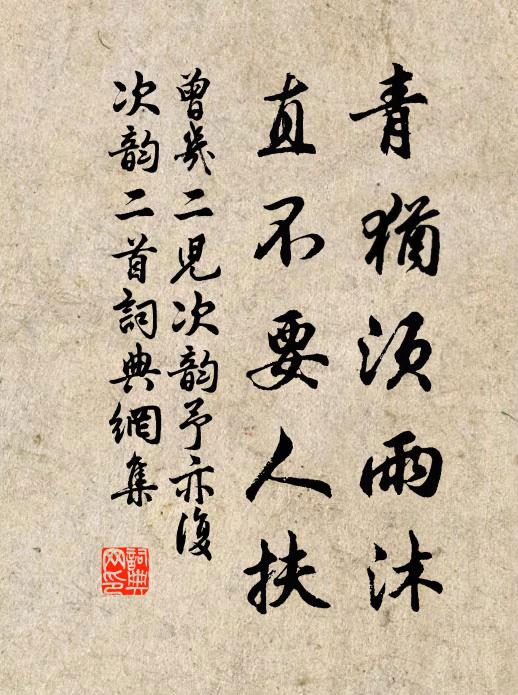 青猶須雨沐
直不要人扶
曾幾二児次韵予亦復
次韵二首詞典網集
詞典网印